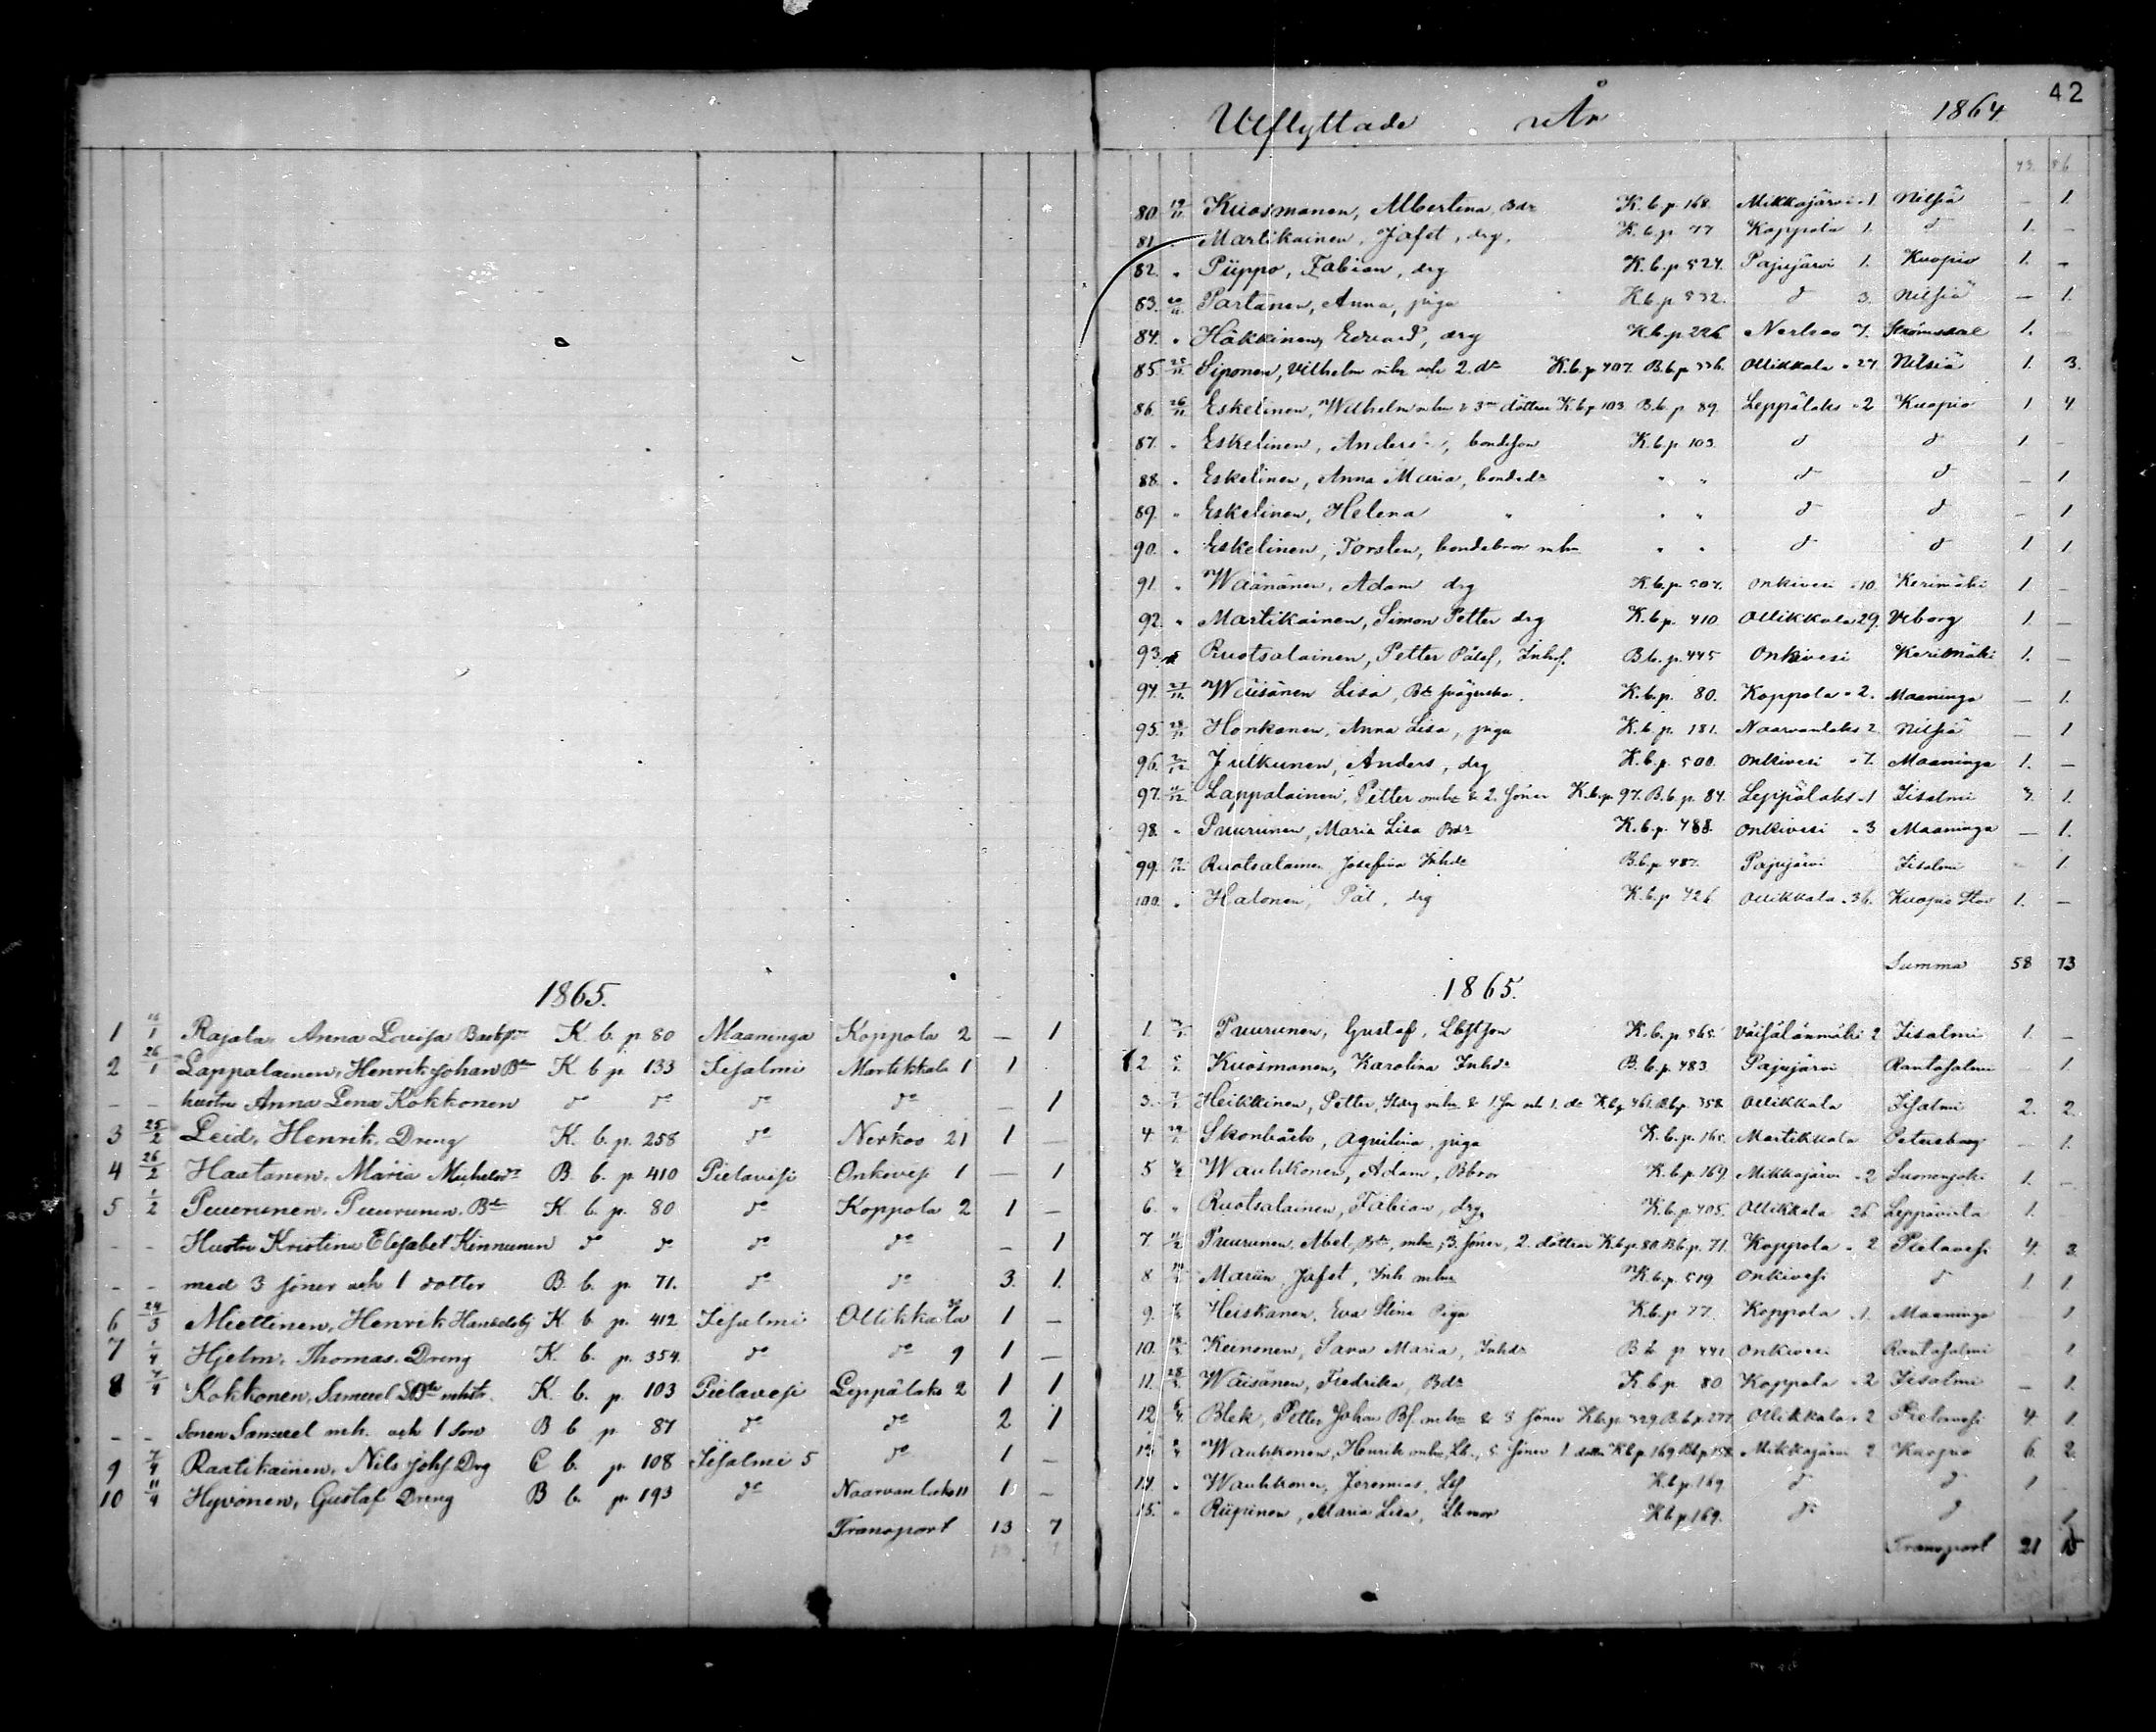 1865.
1 16/1 Rajala, Anna Lovisa K. b. p 80 Maaninga Koppola 2 — 1
2 26/1 Lappalainen, Henrik Johan Bde K b p. 133 Iisalmi Martikkala 1 1
— — hustru Anna Lena Kokkonen do do do do — 1
3 25/2 Leid, Henrik, Dreng K. b. p. 258 do Nerkoo 21 1 —
4 26/2 Hautanen, Maria Michelsdr B. b. p. 410 Pielavesi Onkivesi 1 — 1
5 1/2 Puurunen, Puurunen, Bde K. b. p. 80 do Koppola 2 1 —
— — Hustru Kristina Elisabet Kinnunen do do do do — 1
— — med 3 söner och 1 dotter B. b. p. 71. do do 3. 1.
6 24/3 Miettinen, Henrik K b p. 412 Iisalmi Ollikkala 1 —
7 1/4 Hjelm, Thomas, Dreng K. b. p. 354. do do 9 1 —
8 4/4 Kokkonen, Samuel K. b. p. 103 Pielavesi Leppälaks 2 1 1
— — Sonen Samuel mh. och 1 son B b p 87 do do 2 1
9 7/4 Raatikainen, Nils Johs. Drg C b. p. 108 Iisalmi 5 do 1 —
10 11/4 Hyvönen, Gustaf Dreng B b. p. 193 do Naarvanlaks 11 1 —
Transport 13 7
42
Utflyttade År 1864
43 86
80. 19/11 Kuosmanen, Albertina, Bdr K. b. p. 168. Mikkajärvi 1. Nilsiä — 1.
81. " Martikainen, Jafet, drg. K. b. p 77 Koppola 1. d 1. —
82. " Piippo, Fabian, drg K. b. p 524. Pajujärvi 1. Kuopio 1. —
83. 20/11 Partanen, Anna, piga K b. p 532. d 3. Nilsiä — 1.
84. " Häkkinen, Edvard, drg K b. p 226 Nerkoo 7. Strömsdal 1. —
85. 25/11 Siponen, Vilhelm mhu och 2. dr K. b. p 407. B. b. p 336. Ollikkala " 27. Nilsiä 1. 3.
86. 26/11 Eskelinen, Wilhelm mhu & 3ne döttrar K. b. p 103. B. b. p 89. Leppälaks " 2 Kuopio 1 4.
87. " Eskelinen, Anders, bondeson K. b. p 103. d d 1. —
88. " Eskelinen, Anna Maria, bondedr " " d d — 1
89. " Eskelinen, Helena " " " d d — 1
90. " Eskelinen, Torsten, bondebror mhu " " d d 1 1
91. " Wäänänen, Adam drg K. b. p. 507. Onkivesi " 10. Kerimäki 1. —
92. " Martikainen, Simon Petter drg K. b. p. 410 Ollikkala 29. Viborg 1. —
93. " Ruotsalainen, Petter Pålsf, Inhs. B b. p. 445 Onkivesi Kerimäki 1. —
94. 27/11 Wäisänen Lisa, Bde K. b. p. 80. Koppola " 2. Maaninga — 1.
95. 28/11 Honkanen, Anna Lisa, piga K. b. p. 181. Naarvanlaks 2. Nilsiä — 1
96. 2/12 Julkunen, Anders, drg K. b. p. 500. Onkivesi " 7. Maaninga 1. —
97. 11/12 Lappalainen, Petter mhu & 2. söner K. b. p. 97. B. b. p. 84. Leppälaks " 1 Iisalmi 3. 1.
98. " Puurunen, Maria Lisa Bdr K. b. p. 488. Onkivesi " 3 Maaninga — 1.
99. Ruotsalainen Josefina Inhdr B. b. p 487. Pajujärvi Iisalmi — 1.
100. " Halonen, Pål, drg K. b. p 426 Ollikkala " 36. Kuopio Stad 1. —
Summa 58 73
1865.
1. Puurunen, Gustaf, K. b. p. 565. Väisälänmäki 2 Iisalmi 1. —
2. Kuosmanen, Karolina Inhdr B. b. p. 483. Pajujärvi Rantasalmi — 1
3. Heikkinen, Petter, mhu & 1. son och 1. dr K b p 461. B b p. 358. Ollikkala Iisalmi 2. 2.
4. Skonbärk, Aquilina, piga K. b. p. 165. Martikkala Petersburg — 1.
5 Wauhkonen, Adam, Bbror K. b. p. 169 Mikkajärvi " 2 Suonenjoki 1. —
6. " Ruotsalainen, Fabian, drg K. b. p 405. Ollikkala 26 Leppävirta 1. —
7. Puurunen, Abel, Bde, mhu, 3. söner, 2. döttrar K. b. p. 80. B. b. p. 71. Koppola " 2 Pielavesi 4. 3.
8 Mariin, Jafet, Inh mhu K. b. p. 519 Onkivesi d 1. 1.
9. Heiskanen, Eva Stina Piga K. b. p 77. Koppola " 1. Maaninga — 1
10. Keinonen, Sara Maria, Inhdr B b p 441 Onkivesi Rantasalmi — 1
11. Wäisänen, Fredrika, Bdr K. b. p 80 Koppola " 2 Iisalmi — 1.
12 Blek, Petter Johan Bf. mhu & 3 söner K b. p 329. B. b. p 277. Ollikkala " 2 Pielavesi 4. 1.
13. Wauhkonen, Henrik mhu, Lb., 5 söner 1 dotter K b p. 169. B b p 158. Mikkajärvi 2 Kuopio 6. 2.
14. " Wauhkonen, Jeremias, Lbf K. b. p. 169. d d 1 —
15. " Riipinen, Maria Lisa, Lbmor K b p 169. do d 1
Transport 21